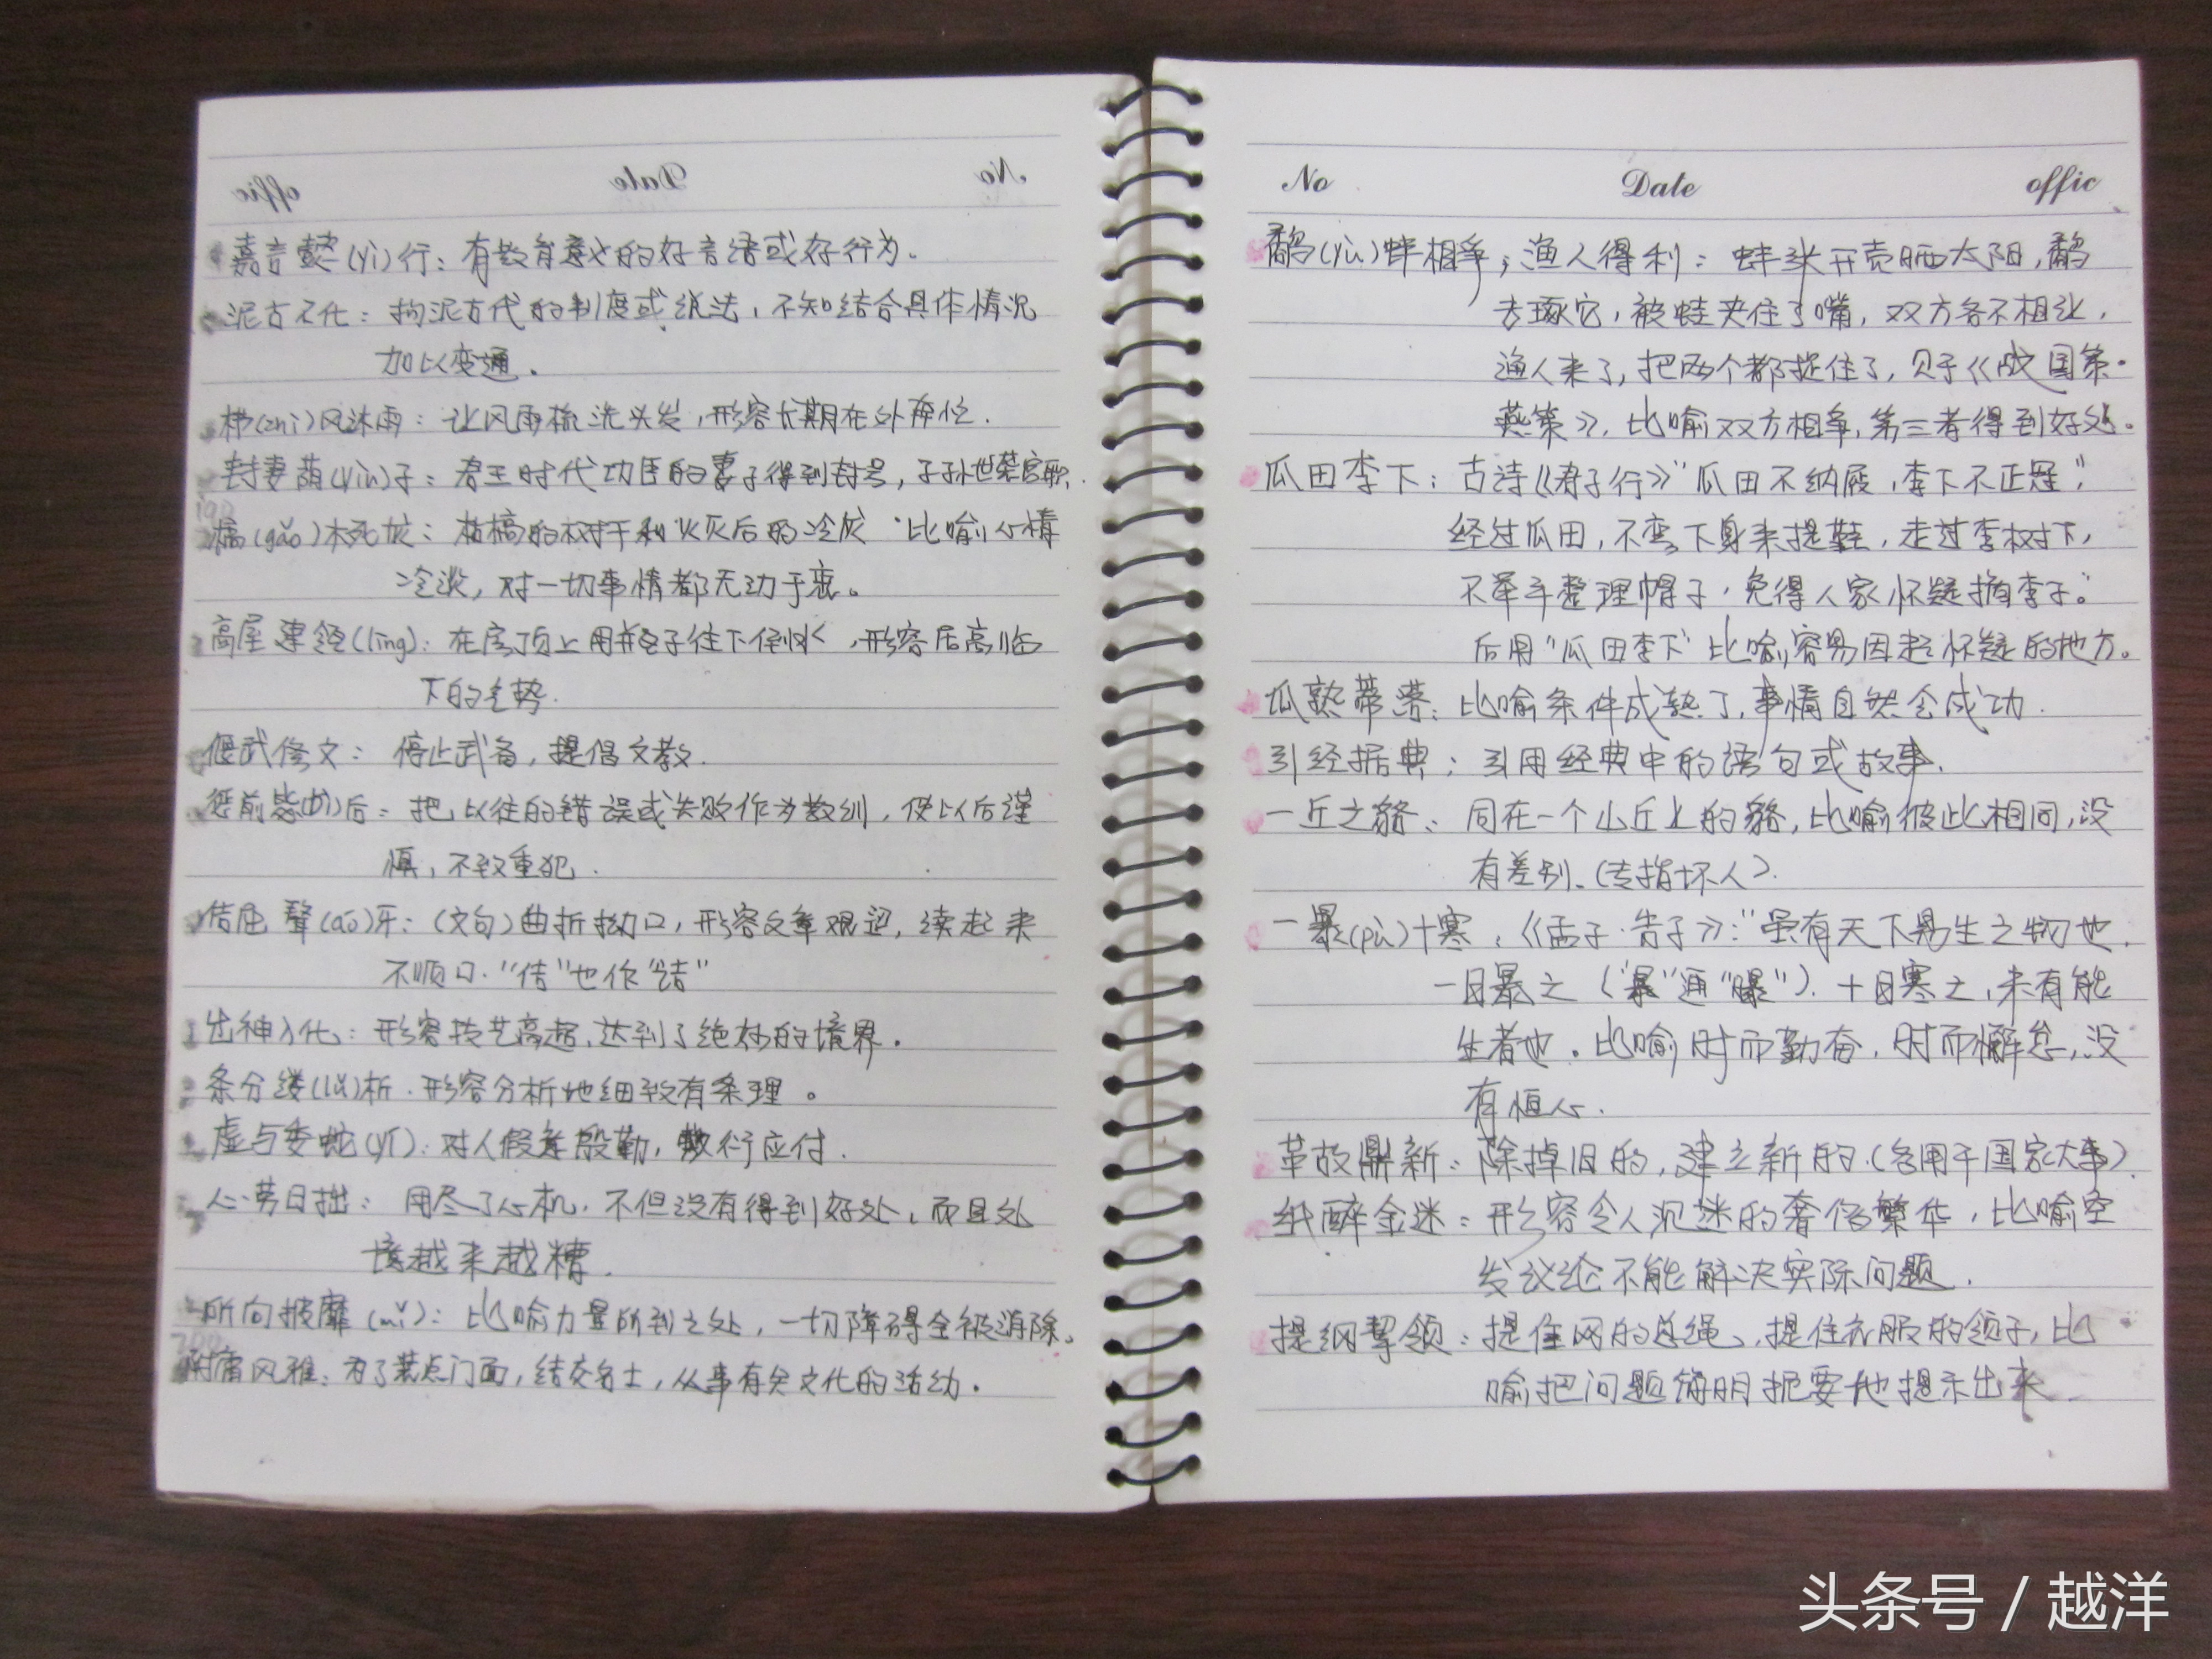 offic Date No
嘉言懿(yì)行：有教育意义的好言语或好行为。
泥古不化：拘泥古代的制度或说法，不知结合具体情况
加以变通。
栉(zhì)风沐雨：让风雨梳洗头发，形容长期在外奔忙.
封妻荫(yìn)子：君王时代功臣的妻子得到封号，子孙世袭官职.
槁(gǎo)木死灰：枯槁的树干和火灭后的冷灰 比喻心情
冷淡，对一切事情都无动于衷。
高屋建瓴(líng)：在房顶上用瓶子往下倒水，形容居高临
下的气势.
偃武修文：停止武备，提倡文教.
惩前毖(bì)后：把以往的错误或失败作为教训，使以后谨
慎，不致重犯.
佶屈聱(áo)牙：(文句)曲折拗口，形容文章艰涩，读起来
不顺口."佶"也作"诘"
出神入化：形容技艺高超，达到了绝妙的境界.
条分缕(lǚ)析.形容分析地细致有条理。
虚与委蛇(yí)：对人假意殷勤，敷衍应付.
心劳日拙：用尽了心机，不但没有得到好处，而且处
境越来越糟.
所向披靡(mǐ)：比喻力量所到之处，一切障碍全被消除。
附庸风雅：为了装点门面，结交名士，从事有关文化的活动.
No Date offic
鹬(yù)蚌相争；渔人得利：蚌张开壳晒太阳，鹬
去琢它，被蛙夹住了嘴，双方各不相让，
渔人来了，把两个都捉住了，见于《战国策·
燕策》，比喻双方相争，第三者得到好处。
瓜田李下：古诗《君子行》"瓜田不纳履，李下不正冠，"
经过瓜田，不弯下身来提鞋，走过李树下，
不举手整理帽子，免得人家怀疑摘李子。"
后用"瓜田李下"比喻容易因起怀疑的地方。
瓜熟蒂落：比喻条件成熟了，事情自然会成功.
引经据典：引用经典中的语句或故事.
一丘之貉：同在一个山丘上的貉，比喻彼此相同，没
有差别.(专指坏人).
一暴(pù)十寒，《孟子·告子》："虽有天下易生之物也.
一日暴之("暴"通"曝").十日寒之，未有能
生者也.比喻时而勤奋，时而懈怠，没
有恒心.
革故鼎新：除掉旧的，建立新的.(多用于国家大事).
纸醉金迷：形容令人沉迷的奢侈繁华，比喻空
发议论不能解决实际问题.
提纲挈领：提住网的总绳，提住衣服的领子，比
喻把问题简明扼要地提示出来.
头条号 / 越洋